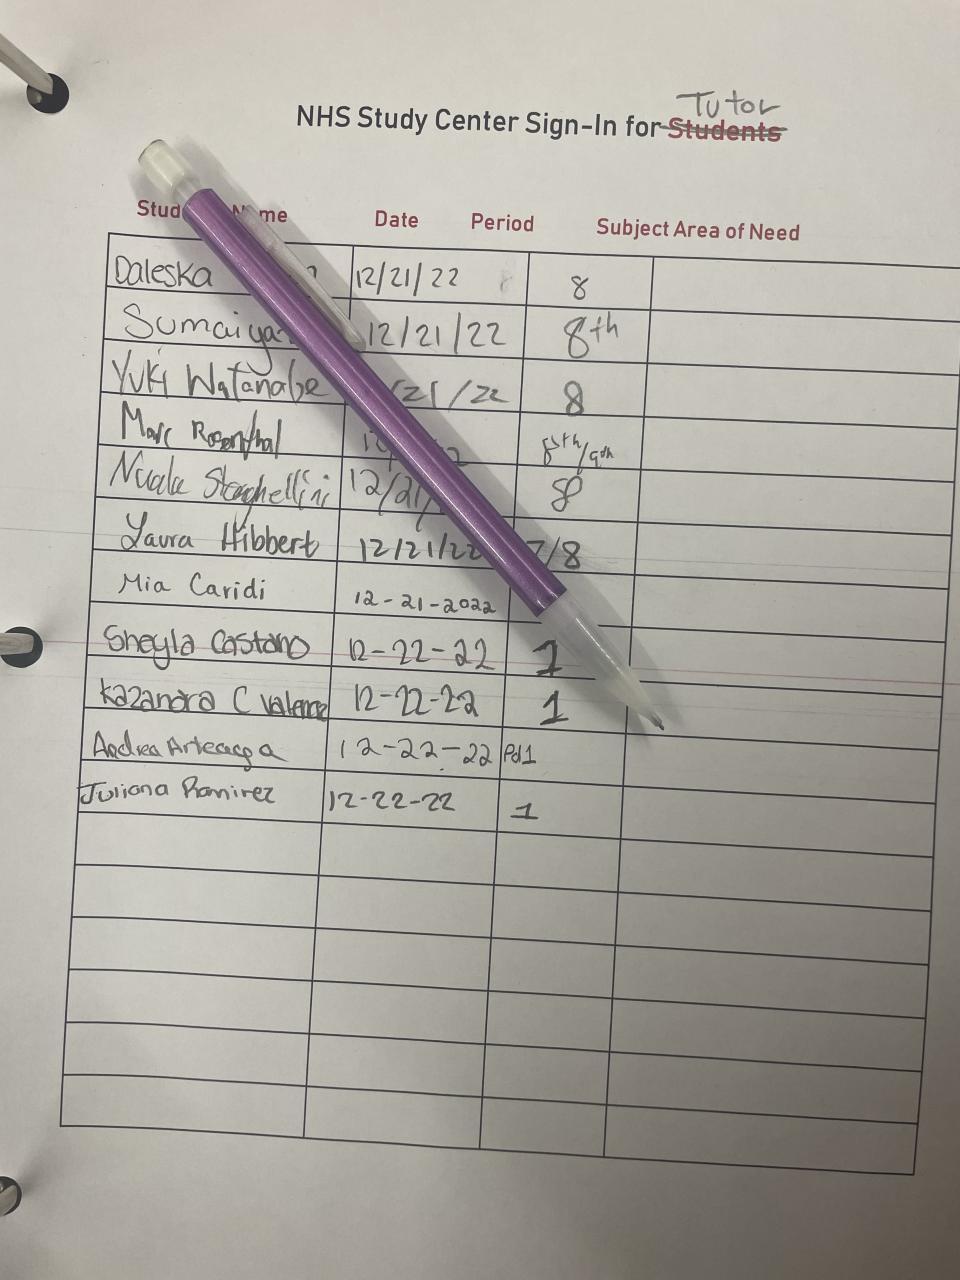 Tutor
NHS Study Center Sign-In for Students
Name Date Period Subject Area of Need
Daleska 12/21/22 8
Sumaiya 12/21/22 8th
Yuki Watanabe /21/22 8
Marc Rosenthal 8th/9th
12/21/ 8
Laura Hibbert 12/21/22 7/8
Mia Caridi 12-21-2022
Sheyla Castano 12-22-22 1
Kazandra C Valence 12-22-22 1
Andrea Arteaga 12-22-22 Pd1
Juliana Ramirez 12-22-22 1